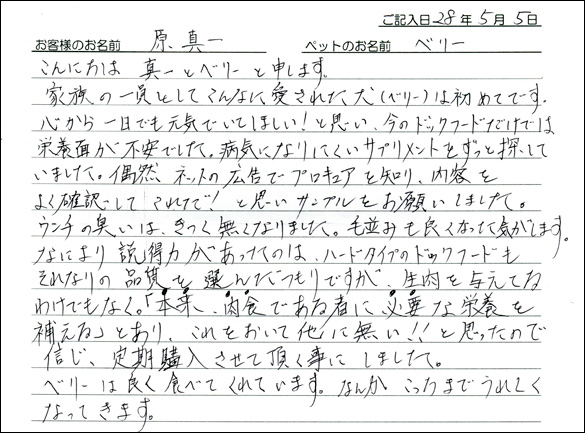 ご記入日 28年 5月 5日
お客様のお名前 原 真一 ペットのお名前 ベリー
こんにちは 真一とベリーと申します。
家族の一員としてこんなに愛された犬(ベリー)は初めてです。
心から一日でも元気でいてほしい!と思い、今のドックフードだけでは
栄養面が不安でした。病気になりにくいサプリメントをずっと探して
いました。偶然、ネットの広告でプロキュアを知り、内容を
よく確認して これだで!と思いサンプルをお願いしました。
ウンチの臭いは、きつく無くなりました。毛並みも良くなった気がします。
なにより説得力があったのは、ハードタイプのドックフードも
それなりの品質を選んだつもりですが、生肉を与えてる
わけでもなく。「本来、肉食である者に必要な栄養を
補える」とあり、これをおいて他に無い!!と思ったので
信じ、定期購入させて頂く事にしました。
ベリーは良く食べてくれています。なんか こっちまでうれしく
なってきます。